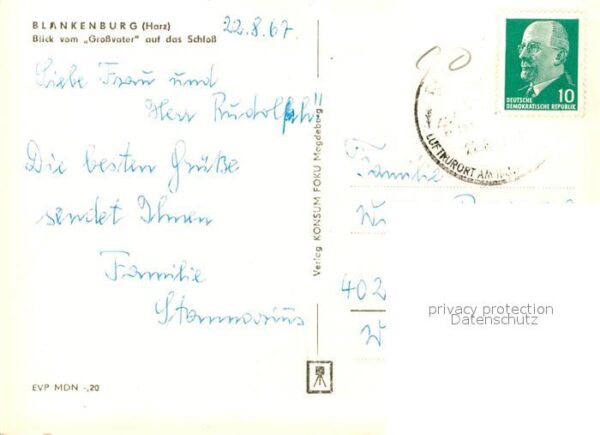 BLANKENBURG (Harz)
Blick vom „Großvater" auf das Schloß
22.8.67.
Liebe Frau und
Herr Rudolph"
Die besten Grüße
sendet Ihnen
Familie
Verlag KONSUM FOKU Magdeburg
DEUTSCHE
DEMOKRATISCHE REPUBLIK
10
LUFTKURORT AM
Familie
402
W
privacy protection
Datenschutz
EVP MDN -,20